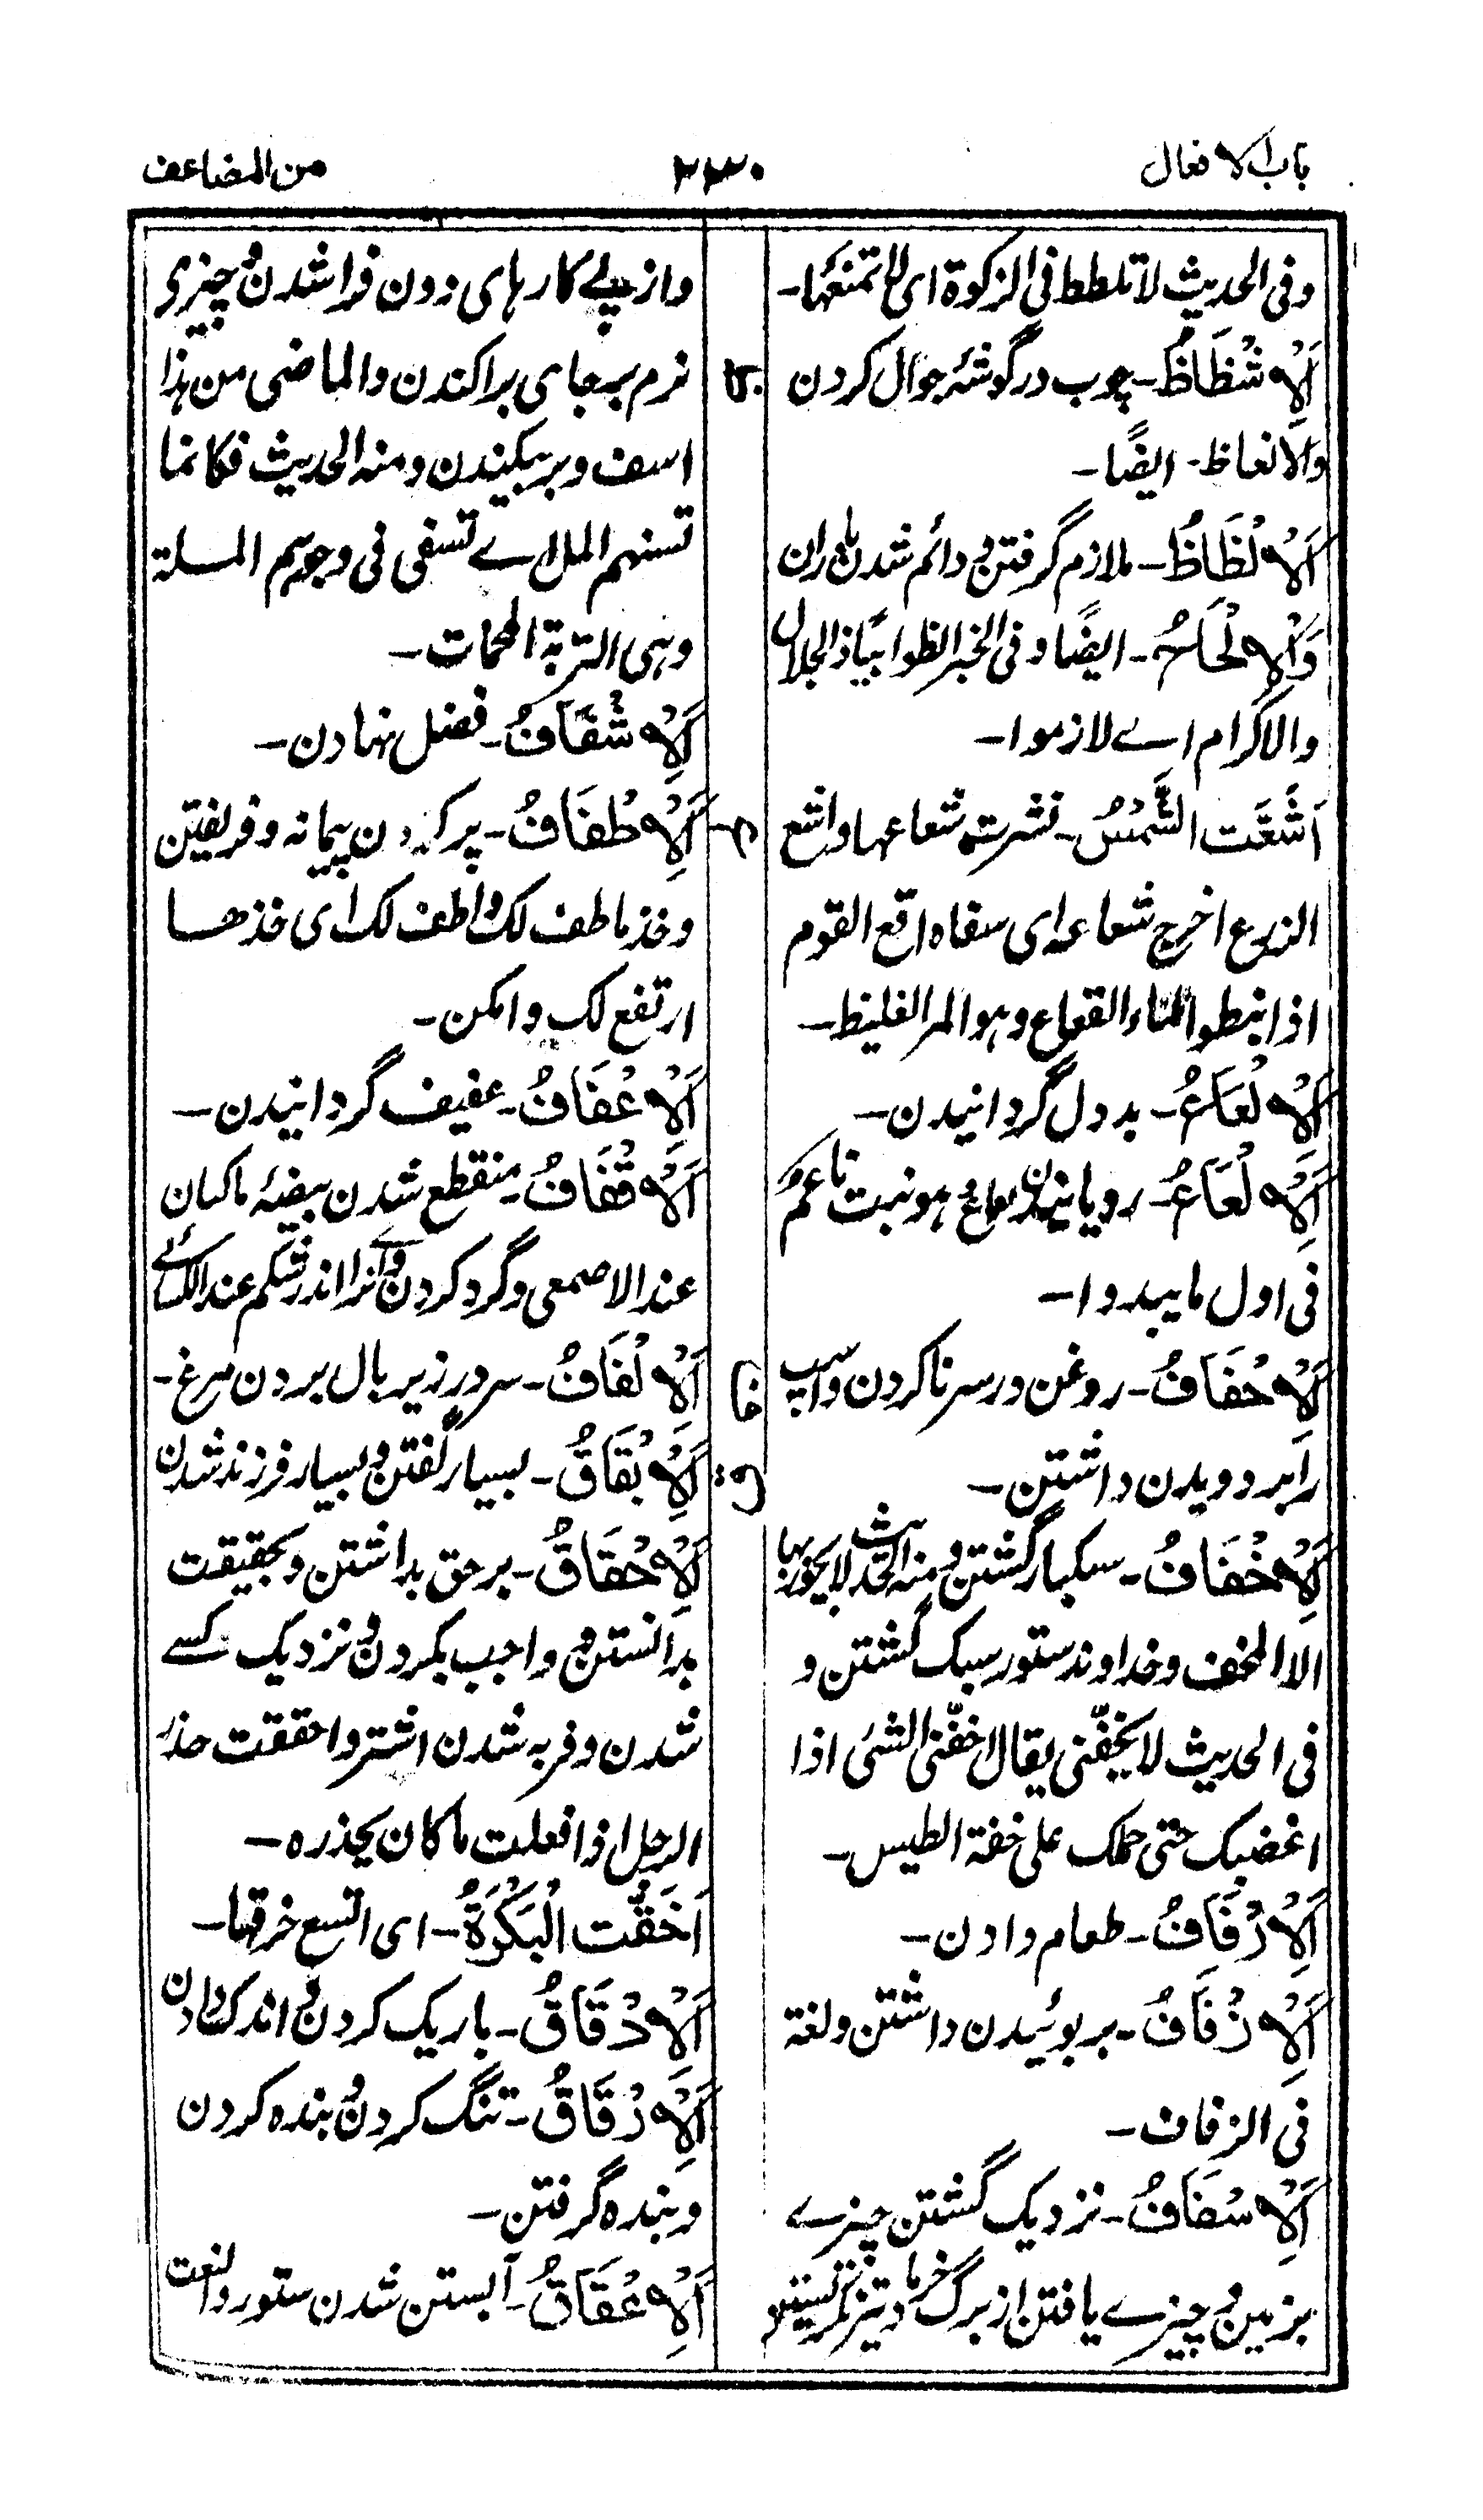 باب الافعال
۲۳۰
من المضاعف
وفی الحدیث لا تلطط فی الزکوة ای لا تمنعها۔
اَلْاِشْظَاظُ۔ چوب در گوشۂ جوال کردن
والانعاظ۔ ایضًا۔
اَلْاِلْظَاظُ۔ ملازم گرفتن و دائم شدن باران
وَالْاِلْحَاحُ۔ ایضًا و فی الخبر الظوا بیا ذا الجلال
والاکرام اے لازموا۔
اَشَعَّت الشَّمْسُ۔ نشرت شعاعها واشع
الزرع اخرج شعاعه ای سفاه اقع القوم
اذا انبطوا الماء القعاع و هو المر الغلیظ۔
اَلْاِلْعَاعُ۔ بددل گردانیدن۔
اَلْاِلْعَاعُ۔ رویانیدن لعاع و هو نبت ناعم
فی اول ما یبدوا۔
اَلْاِحْفَافُ۔ روغن در سر نا کردن و اسپ
را بر دویدن داشتن۔
اَلْاِخْفَافُ۔ سبکبار گشتن و منه الحدیث لا یجوزها
الا المخف و خداوند ستور سبک گشتن و
فی الحدیث لا یخفّنی یقال اخفّنی الشیٔ اذا
اغضبک حتی حملک علی خفة الطیس۔
اَلْاِرْفَافُ۔ طعام دادن۔
اَلْاِزْفَافُ۔ بر پوئیدن داشتن ولغة
فی الزفاف۔
اَلْاِسْفَافُ۔ نزدیک گشتن چیزے
بزمین و چیزے یافتن از برگ خرما و تیز نگریستن
و از پے کارهای دون فرا شدن و چیزی
نرم بر جای پراکندن والماضی من هذا
اسف و بر پیکیندن و منه الحدیث فکانما
تسفهم المل اے تسفی فی وجوههم الملة
وهی التربة المحمات۔
اَلْاِشْفَافُ۔ فضل نهادن۔
اَلْاِطْفَافُ۔ پر کردن پیمانه و فریفتن
وخذ ما طف لک واطف لک ای خذ ما
ارتفع لک وامکن۔
اَلْاِعْفَافُ۔ عفیف گردانیدن۔
اَلْاِقْفَافُ۔ منقطع شدن بیضۂ ماکیان
عند الاصمعی و گرد کردن و آنرا اندر شکم عند الکسائے
اَلْاِلْفَافُ۔ سر در زیر بال بردن مرغ۔
اَلْاِبْقَاقُ۔ بسیار گفتن و بسیار فرزند شدن
اَلْاِحْقَاقُ۔ بر حق بداشتن و بحقیقت
بدانستن و واجب بکردن و نزدیک کسے
شدن و فربه شدن اشتر واحققت حذر
الرجل اذا فعلت ما کان یحذره۔
اَخَقَّت الْبَکْرَةُ۔ ای اتسع خرقها۔
اَلْاِدْقَاقُ۔ باریک کردن و اندک دادن
اَلْاِرْقَاقُ۔ تنگ کردن و بنده کردن
و بنده گرفتن۔
اَلْاِعْقَاقُ۔ آبستن شدن ستور والنعت